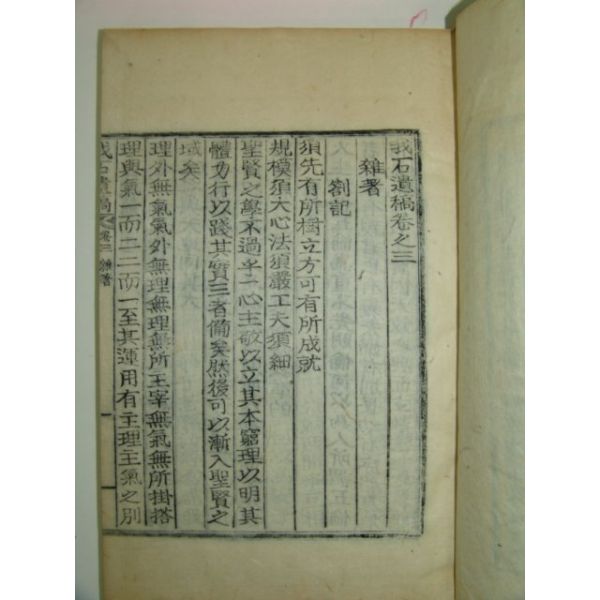 我石遺稿卷之三
雜著
劄記
須先有所樹立方可有所成就
規模須大心法須嚴工夫須細
聖賢之學不過乎一心主敬以立其本窮理以明其
體力行以踐其實三者備矣然後可以漸入聖賢之
域矣
理外無氣氣外無理無理無所主宰無氣無所掛搭
理與氣一而二二而一至其運用有主理主氣之別
我石遺稿 卷三 雜著